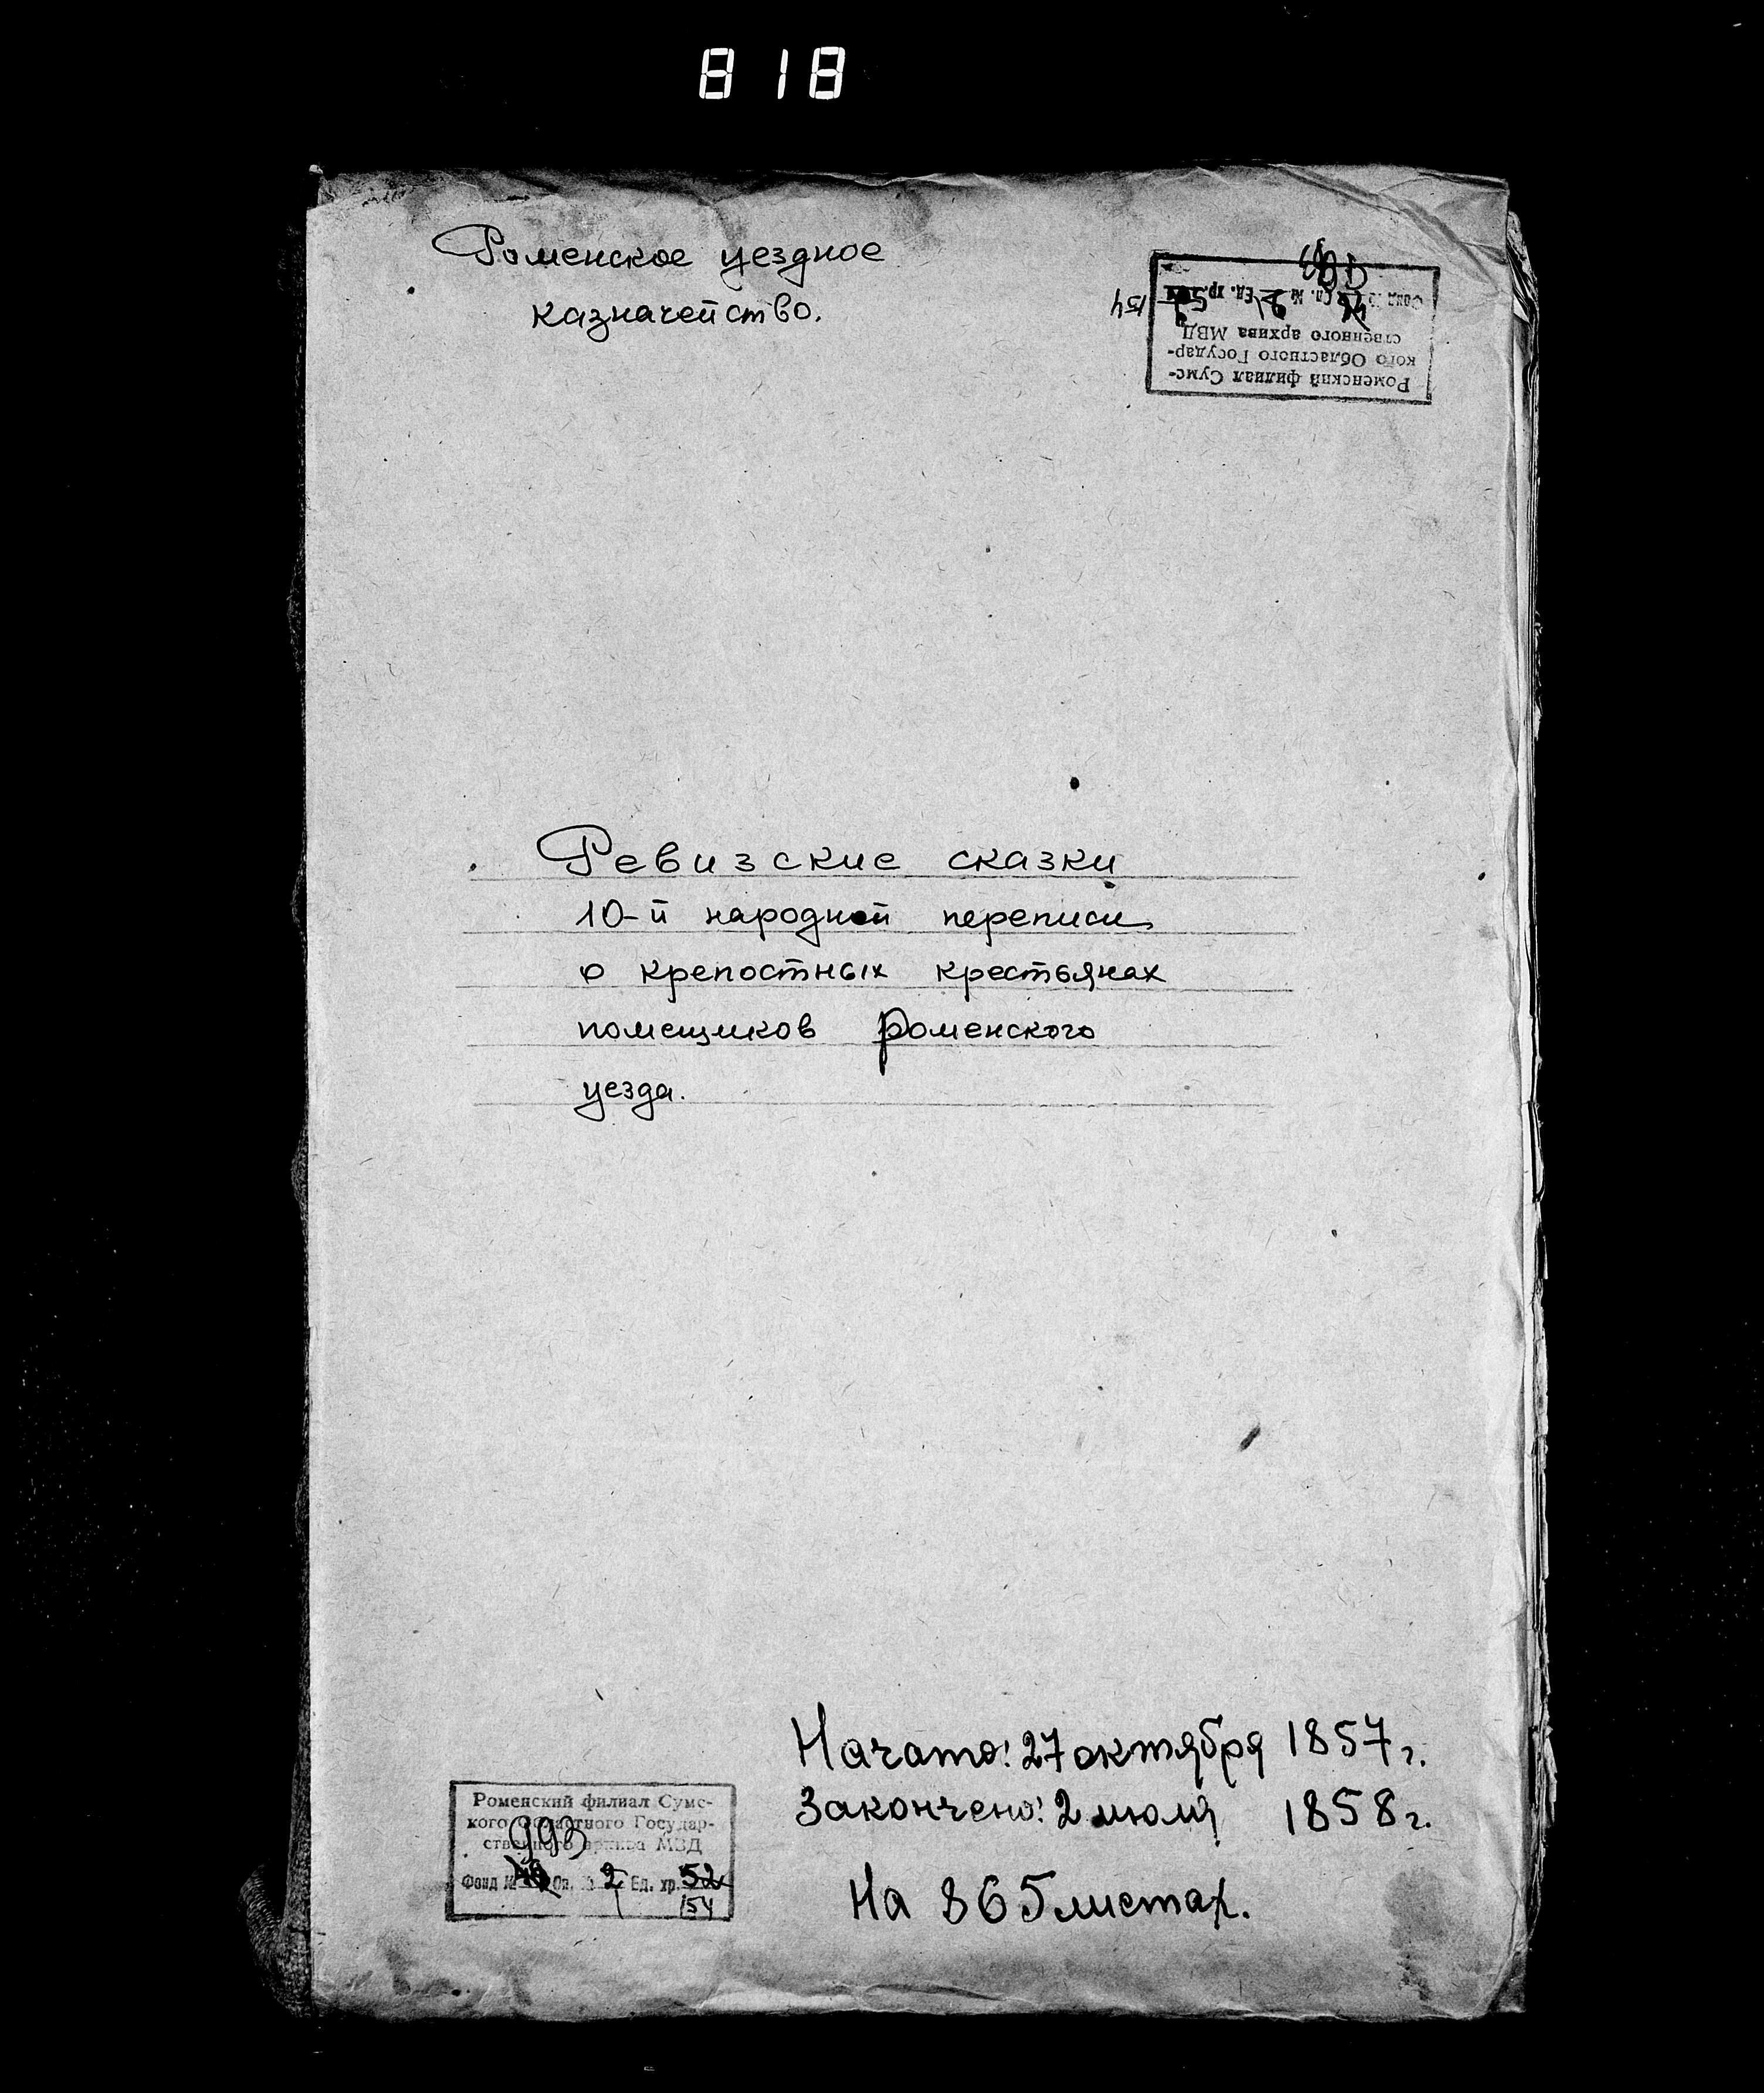 818
Роменское уездное
казначейство.
Роменский филиал Сумс-
кого Областного Государ-
ственного архива МВД
Фонд № Оп. № 2 Ед. хр.
154
993
Ревизские сказки
10-й народной переписи
о крепостных крестьянах
помещиков Роменского
уезда.
Начато: 27 октября 1857 г.
Закончено: 2 июля 1858 г.
На 865 листах.
Роменский филиал Сумс-
кого Областного Государ-
ственного архива МВД
993
Фонд № Оп. № 2 Ед. хр. 52
154